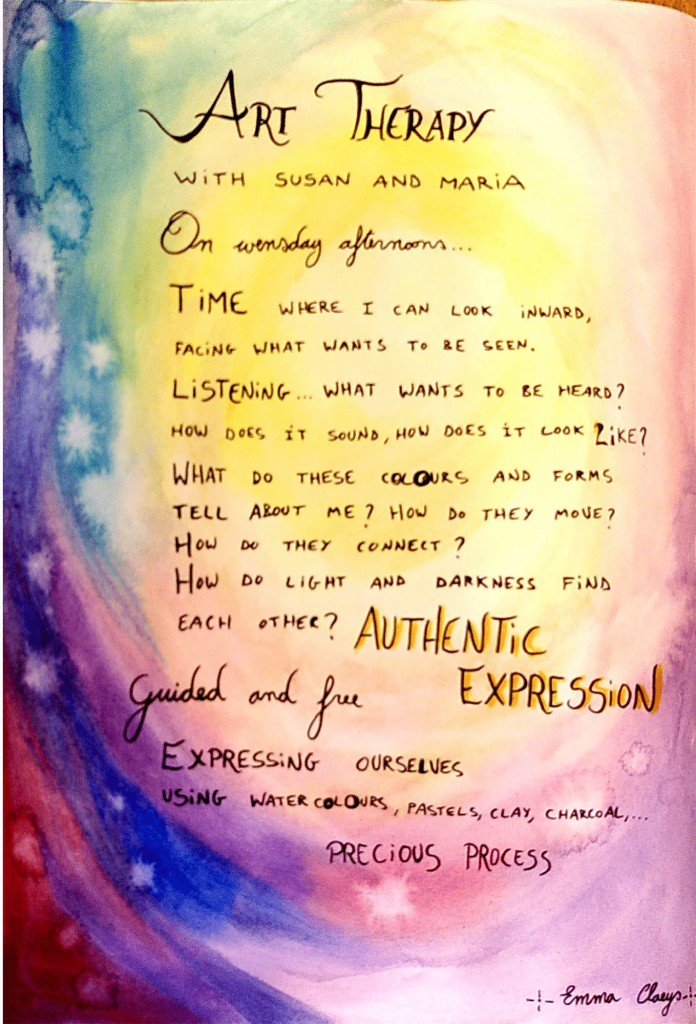 Art Therapy
WiTH SUSAN AND MARiA
On wensday afternoons...
TiME WHERE I CAN LOOK iNWARD,
FACiNG WHAT WANTS TO BE SEEN.
LiSTENiNG... WHAT WANTS TO BE HEARD?
HOW DOES iT SOUND, HOW DOES iT LOOK LiKE?
WHAT DO THESE COLOURS AND FORMS
TELL ABOUT ME? HOW DO THEY MOVE?
HOW DO THEY CONNECT?
HOW DO LIGHT AND DARKNESS FiND
EACH OTHER? AUTHENTiC
Guided and free EXPRESSiON
EXPRESSiNG OURSELVES
USiNG WATERCOLOURS, PASTELS, CLAY, CHARCOAL,...
PRECiOUS PROCESS
-¦- Emma Claeys -¦-